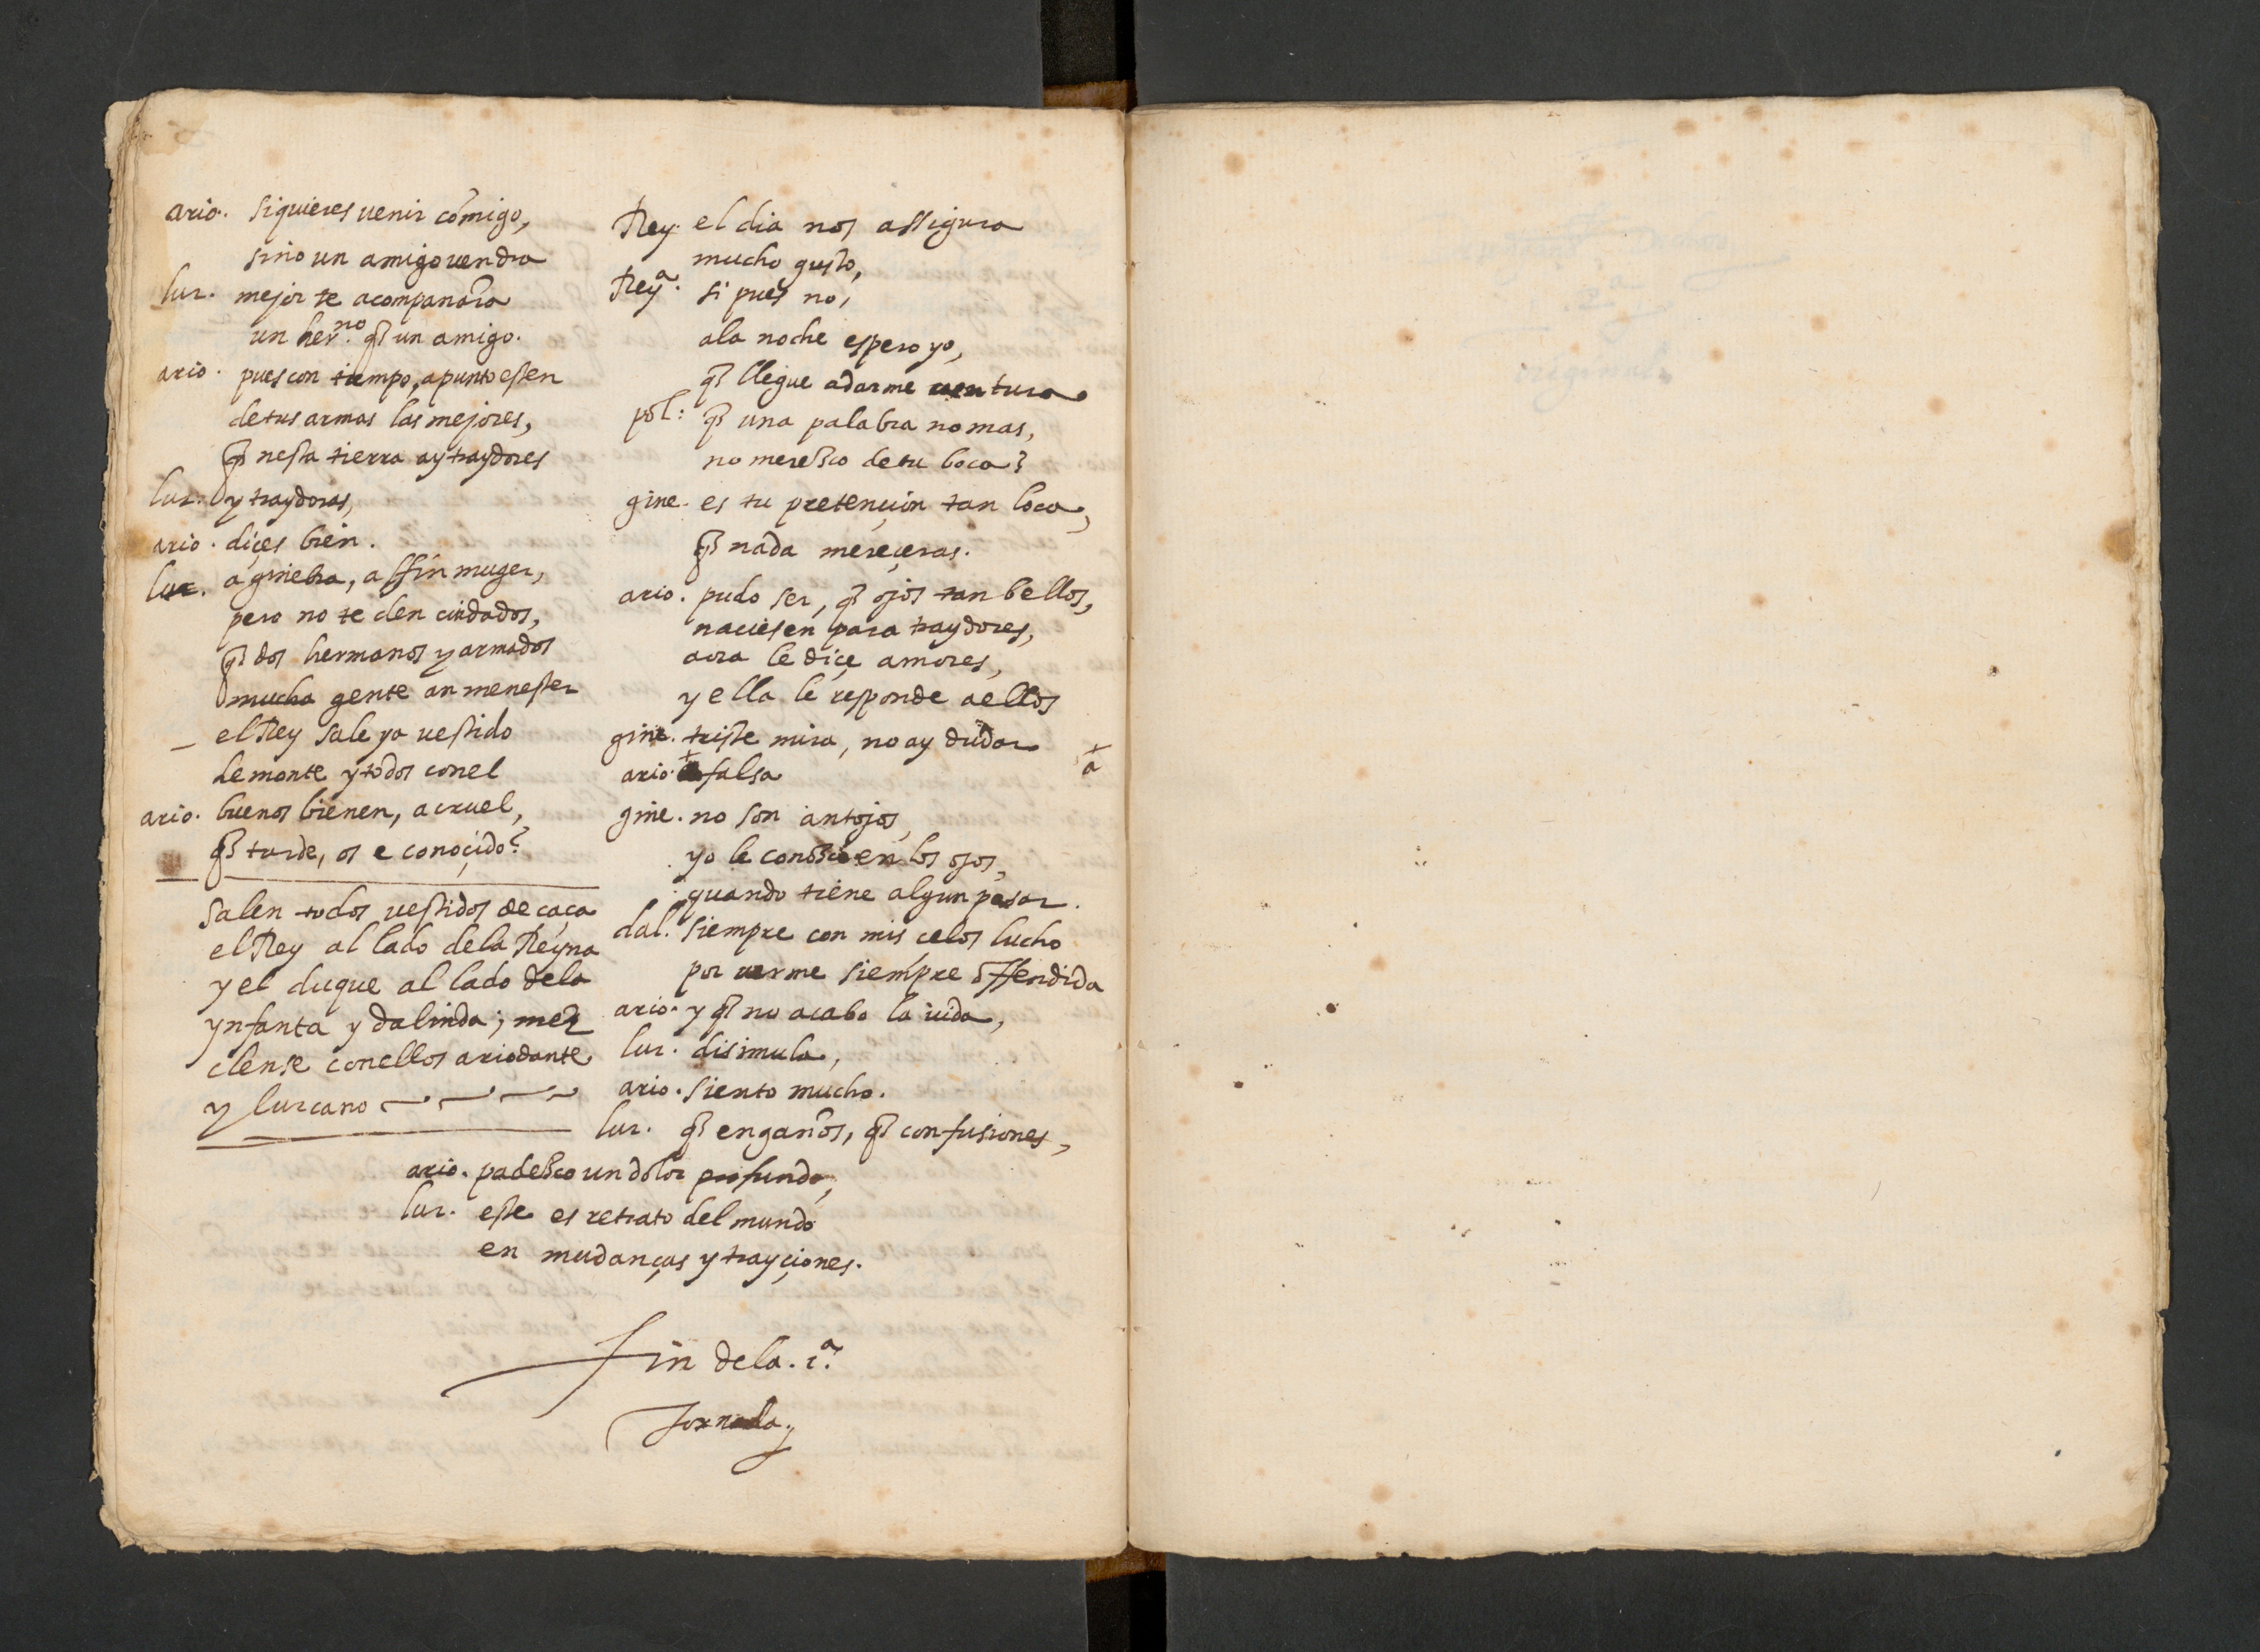 ario. siquieres uenir cõmigo,
sino un amigo uendra
lur. mejor te acompañara
un her.no q̃ un amigo.
ario. pues con tiempo, apunto esten
de tus armas las mejores,
q̃ nesta tierra ay traydores
lur. y traydoras,
ario. diçes bien.
lur. a ginebra, a ffin muger,
pero no te den cuidados,
q̃ dos hermanos y armados
mucha gente an menester
_ el Rey sale ya uestido
de monte y todos conel
ario. buenos bienen, a cruel,
q̃ tarde, os e conoçido?
salen todos uestidos de caça
el Rey al lado dela Reyna
y el duque al lado dela
ynfanta y dalinda; mez
clense conellos ariodante
y lurcano
Rey. el dia nos assigura
mucho gusto,
Reya. si pues no,
ala noche espero yo,
q̃ llegue a darme uentura
pol: q̃ una palabra nomas,
no meresco de tu boca?
gine. es tu pretençion tan loca,
q̃ nada mereçeras.
ario. pudo ser, q̃ ojos tan bellos,
naciesen para traydores,
aora le diçe amores,
y ella le responde a ellos
gine. triste mira, no ay dudar
ario. falsa
+
a
gine. no son antojos,
yo le conosco en los ojos,
quando tiene algun pesar.
dal. siempre con mis çelos lucho
por uerme siempre offendida
ario. y q̃ no acabo la uida,
lur. disimula,
ario. siento mucho.
lur. q̃ engaños, q̃ confusiones,
ario. padesco un dolor profundo,
lur. este es retrato del mundo
en mudanças y trayçiones.
fin dela .1.a
Jornada